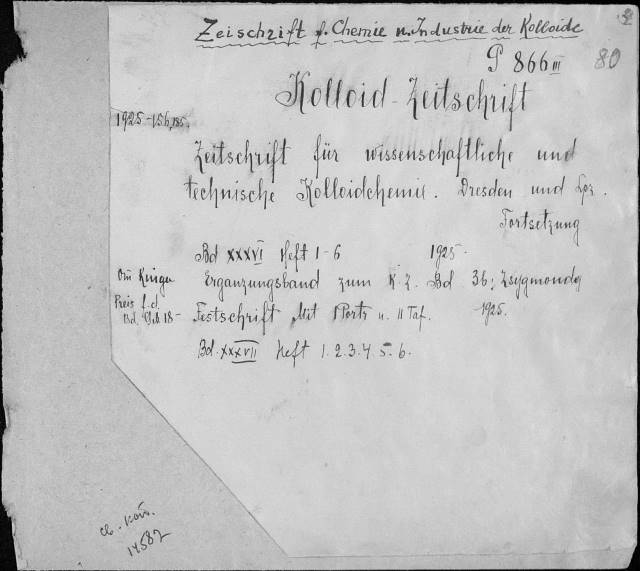 Zeischrift f. Chemie u. Industrie der Kolloide
P 866 III 80
Kolloid-Zeitschrift
1925-156,185.
Zeitschrift für wissenschaftliche und
technische Kolloidchemie. Dresden und Lpz.
Fortsetzung
Bd XXXVI Heft 1-6 1925.
Ergänzungsband zum K.Z. Bd. 36; Zsygmondy
Preis f. d.
Festschrift Mit 1 Portr u. 11 Taf. 1925.
Bd. XXXVII Heft 1.2.3.4.5.6.
14582